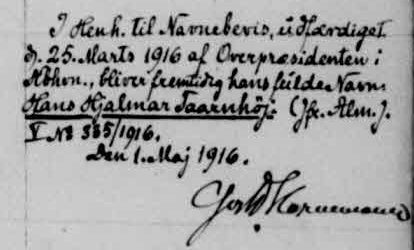 I Henh. til Navnebevis, udfærdiget
d. 25. Marts 1916 af Overpræsidenten i
Kbhvn., bliver fremtidig hans fulde Navn:
Hans Hjalmar Taarnhöj. (Jfr. Alm. J.
V No 585/1916.
Den 1. Maj 1916.
Hornemann